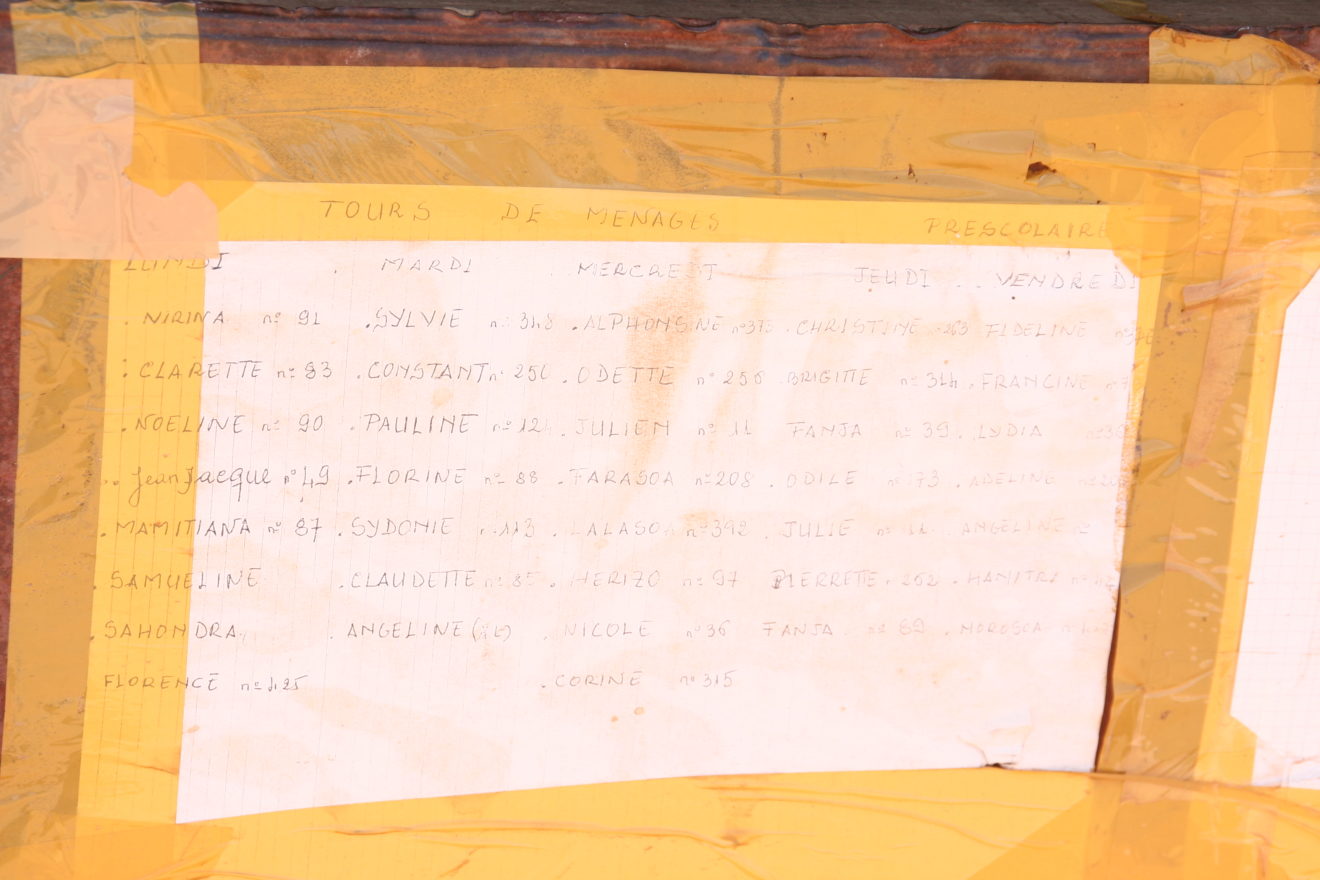 TOURS DE MENAGES PRESCOLAIRE
LUNDI MARDI MERCREDI JEUDI VENDREDI
. NIRINA nº 91 . SYLVIE nº 348 . ALPHONSINE nº 373 . CHRISTINE 263 FIDELINE
. CLARETTE nº 83 . CONSTANT nº 250 . ODETTE nº 256 BRIGITTE nº 314 . FRANCINE
. NOELINE nº 90 . PAULINE nº 124 . JULIEN nº 11 FANJA nº 39 . LYDIA
. Jean Jacque nº 49 . FLORINE nº 88 . FARASOA nº 208 . ODILE nº 173 . ADELINE
. MAMITIANA nº 87 . SYDONIE nº 113 . LALASOA nº 392 . JULIE nº 11 ANGELINE
. SAMUELINE . CLAUDETTE nº 85 . HERIZO nº 97 PIERRETTE . 262 . HANITRA
. SAHONDRA . ANGELINE . NICOLE nº 36 FANJA nº 69 . NOROSOA
FLORENCE nº 125 . CORINE nº 315